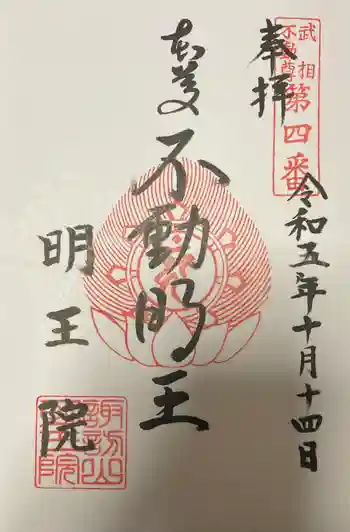 奉拝
武相
不動尊
第四番
令和五年十月十四日
不動明王
明王院